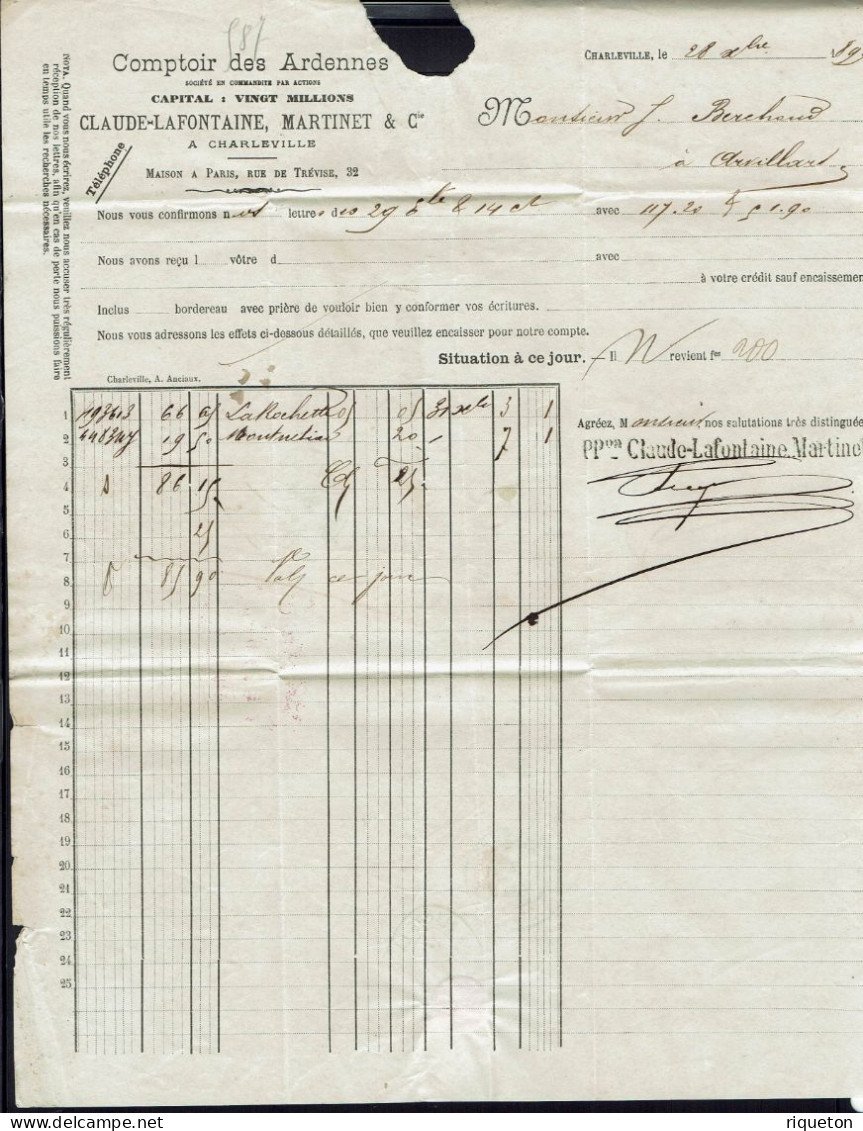 587
Comptoir des Ardennes
SOCIÉTÉ EN COMMANDITE PAR ACTIONS
CAPITAL : VINGT MILLIONS
CLAUDE-LAFONTAINE, MARTINET & Cie
A CHARLEVILLE
Téléphone
MAISON A PARIS, RUE DE TRÉVISE, 32
CHARLEVILLE, le 28 xbre 189
Monsieur J. Berchoud
à Arvillard
NOTA. Quand vous nous écrivez, veuillez nous accuser très régulièrement
réception de nos lettres, afin qu'en cas de perte nous puissions faire
en temps utile les recherches nécessaires.
Nous vous confirmons nos lettres des 29 & 14 ct avec 117.20 & 51.90
Nous avons reçu l vôtre d avec
à votre crédit sauf encaissement
Inclus bordereau avec prière de vouloir bien y conformer vos écritures.
Nous vous adressons les effets ci-dessous détaillés, que veuillez encaisser pour notre compte.
Situation à ce jour. Il N revient fcs 200
Charleville, A. Anciaux.
1 193613 66 65 LaRochette 05 05 31 xbre 3 1
2 19 50 Montmélian 20 7 1
3
4 86 15 25
5
6 25
7
8 85 90 Val ce jour
9
10
11
12
13
14
15
16
17
18
19
20
21
22
23
24
25
Agréez, Monsieur nos salutations très distinguées
PPon Claude-Lafontaine, Martinet
riqueton